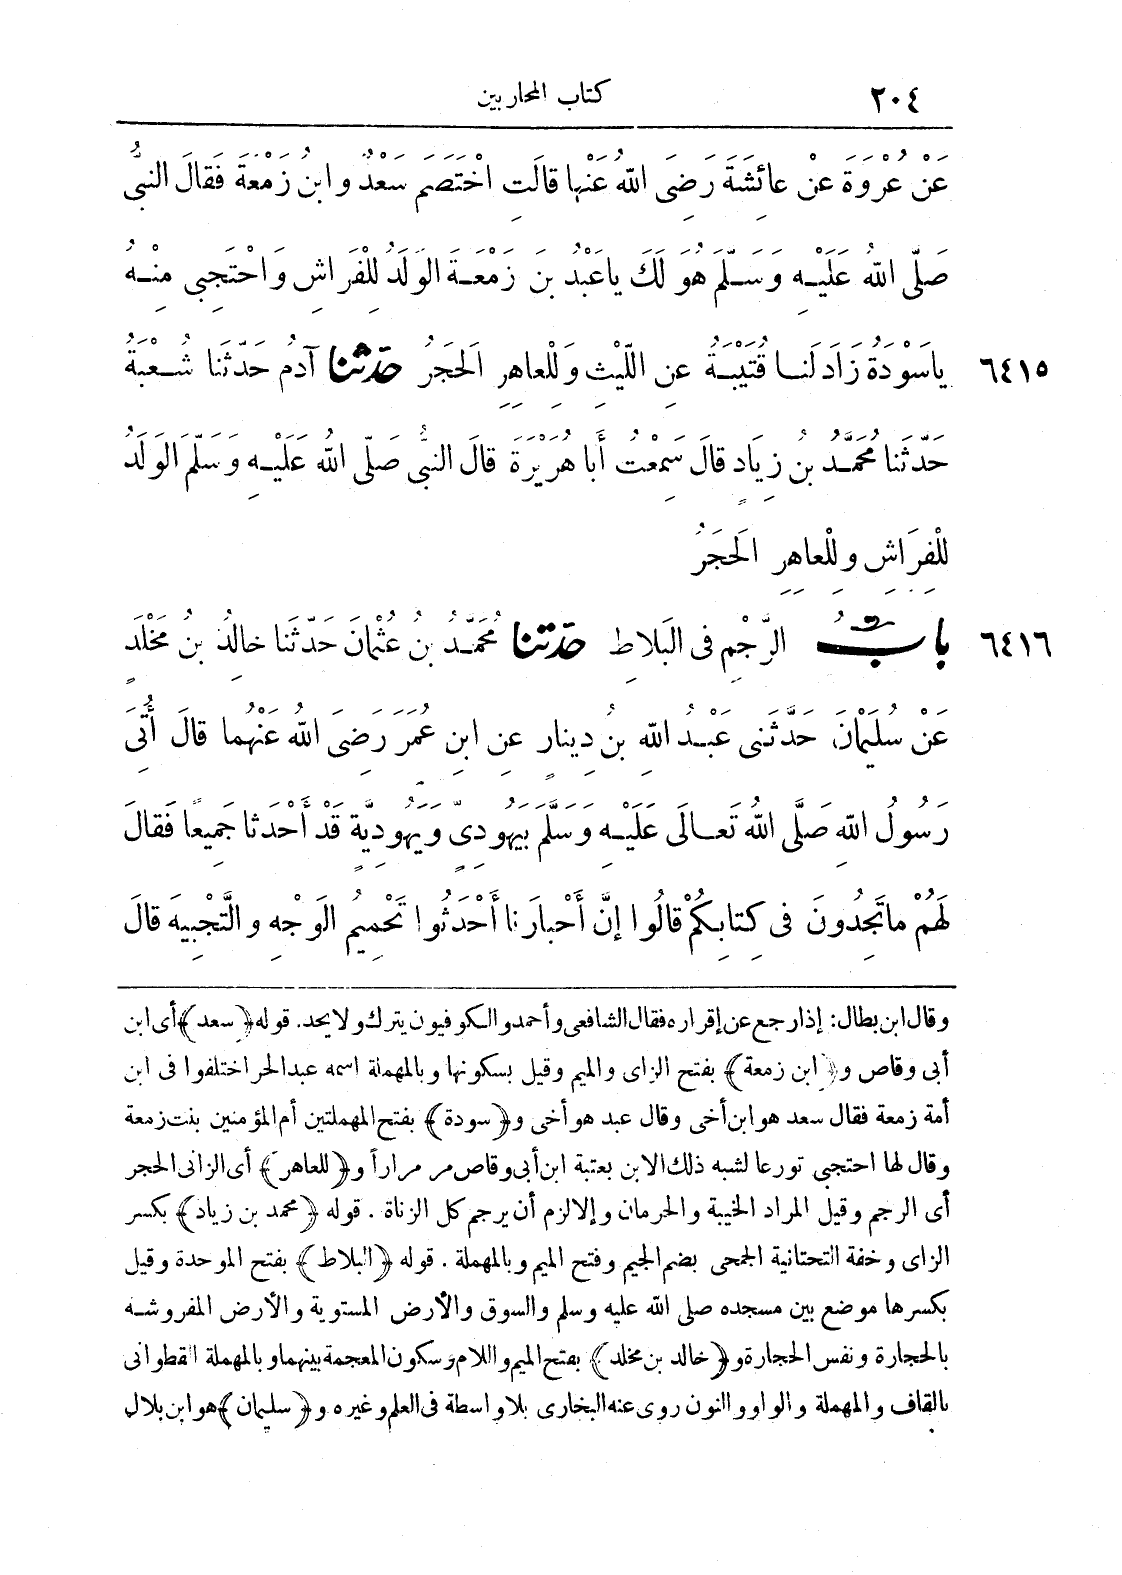 ٢٠٤ كتاب المحاربين
عَنْ عُرْوَةَ عَنْ عائِشَةَ رَضِىَ اللهُ عَنْها قالَتِ اخْتَصَمَ سَعْدٌ وابنُ زَمْعَةَ فَقالَ النبىُّ
صَلَّى اللهُ عَلَيْـهِ وَسَـلَّمَ هُوَ لَكَ ياعَبْدُ بنَ زَمْعَـةَ الوَلَدُ لِلْفَراشِ وَاحْتَجِبِى مِنْـهُ
ياسَوْدَةُ زَادَ لَنـا قُتَيْبَـةُ عنِ اللَّيْثِ وَلِلْعاهِرِ الحَجَرُ حدثنا آدمُ حَدَّثَنا شُـعْبَةُ ٦٤١٥
حَدَّثَنا مُحَمَّـدُ بنُ زِيادٍ قالَ سَمِعْتُ أَبا هُرَيْرَةَ قالَ النبىُّ صَلَّى اللهُ عَلَيْـهِ وَسَلَّمَ الوَلَدُ
لِلْفِرَاشِ ولِلْعاهِرِ الحَجَرُ
بابُ الرَّجْمِ فى البَلاطِ حدثنا مُحَمَّـدُ بنُ عُثْمانَ حَدَّثَنا خالِدُ بنُ مَخْلَدٍ ٦٤١٦
عَنْ سُلَيْمانَ حَدَّثَنى عَبْـدُ اللهِ بنُ دِينارٍ عنِ ابنِ عُمَرَ رَضِىَ اللهُ عَنْهُما قالَ أُتِىَ
رَسُولُ اللهِ صَلَّى اللهُ تَعـالَى عَلَيْـهِ وَسَلَّمَ بِيَهُودِىٍّ ويَهُودِيَّةٍ قَدْ أَحْدَثا جَمِيعًا فَقالَ
لَهُمْ ماتَجِدُونَ فى كِتابِكُمْ قالُوا إنَّ أَحْبارَنا أَحْدَثُوا تَحْمِيمَ الوَجْهِ والتَّجْبِيهَ قالَ
وقال ابن بطال: إذا رجع عن إقراره فقال الشافعى وأحمد والكوفيون يترك ولا يحد. قوله ﴿سعد﴾ أى ابن
أبى وقاص و﴿ابن زمعة﴾ بفتح الزاى والميم وقيل بسكونها وبالمهملة اسمه عبد الحر اختلفوا فى ابن
أمة زمعة فقال سعد هو ابن أخى وقال عبد هو أخى و﴿سودة﴾ بفتح المهملتين أم المؤمنين بنت زمعة
وقال لها احتجبى تورعا لشبه ذلك الابن بعتبة ابن أبى وقاص مر مراراً و﴿للعاهر﴾ أى الزانى الحجر
أى الرجم وقيل المراد الخيبة والحرمان وإلا لزم أن يرجم كل الزناة . قوله ﴿محمد بن زياد﴾ بكسر
الزاى وخفة التحتانية الجمحى بضم الجيم وفتح الميم وبالمهملة . قوله ﴿البلاط﴾ بفتح الموحدة وقيل
بكسرها موضع بين مسجده صلى الله عليه وسلم والسوق والأرض المستوية والأرض المفروشـة
بالحجارة ونفس الحجارة و﴿خالد بن مخلد﴾ بفتح الميم واللام وسكون المعجمة بينهما وبالمهملة القطوانى
بالقاف والمهملة والواو والنون روى عنه البخارى بلا واسطة فى العلم وغيره و﴿سليمان﴾ هو ابن بلال